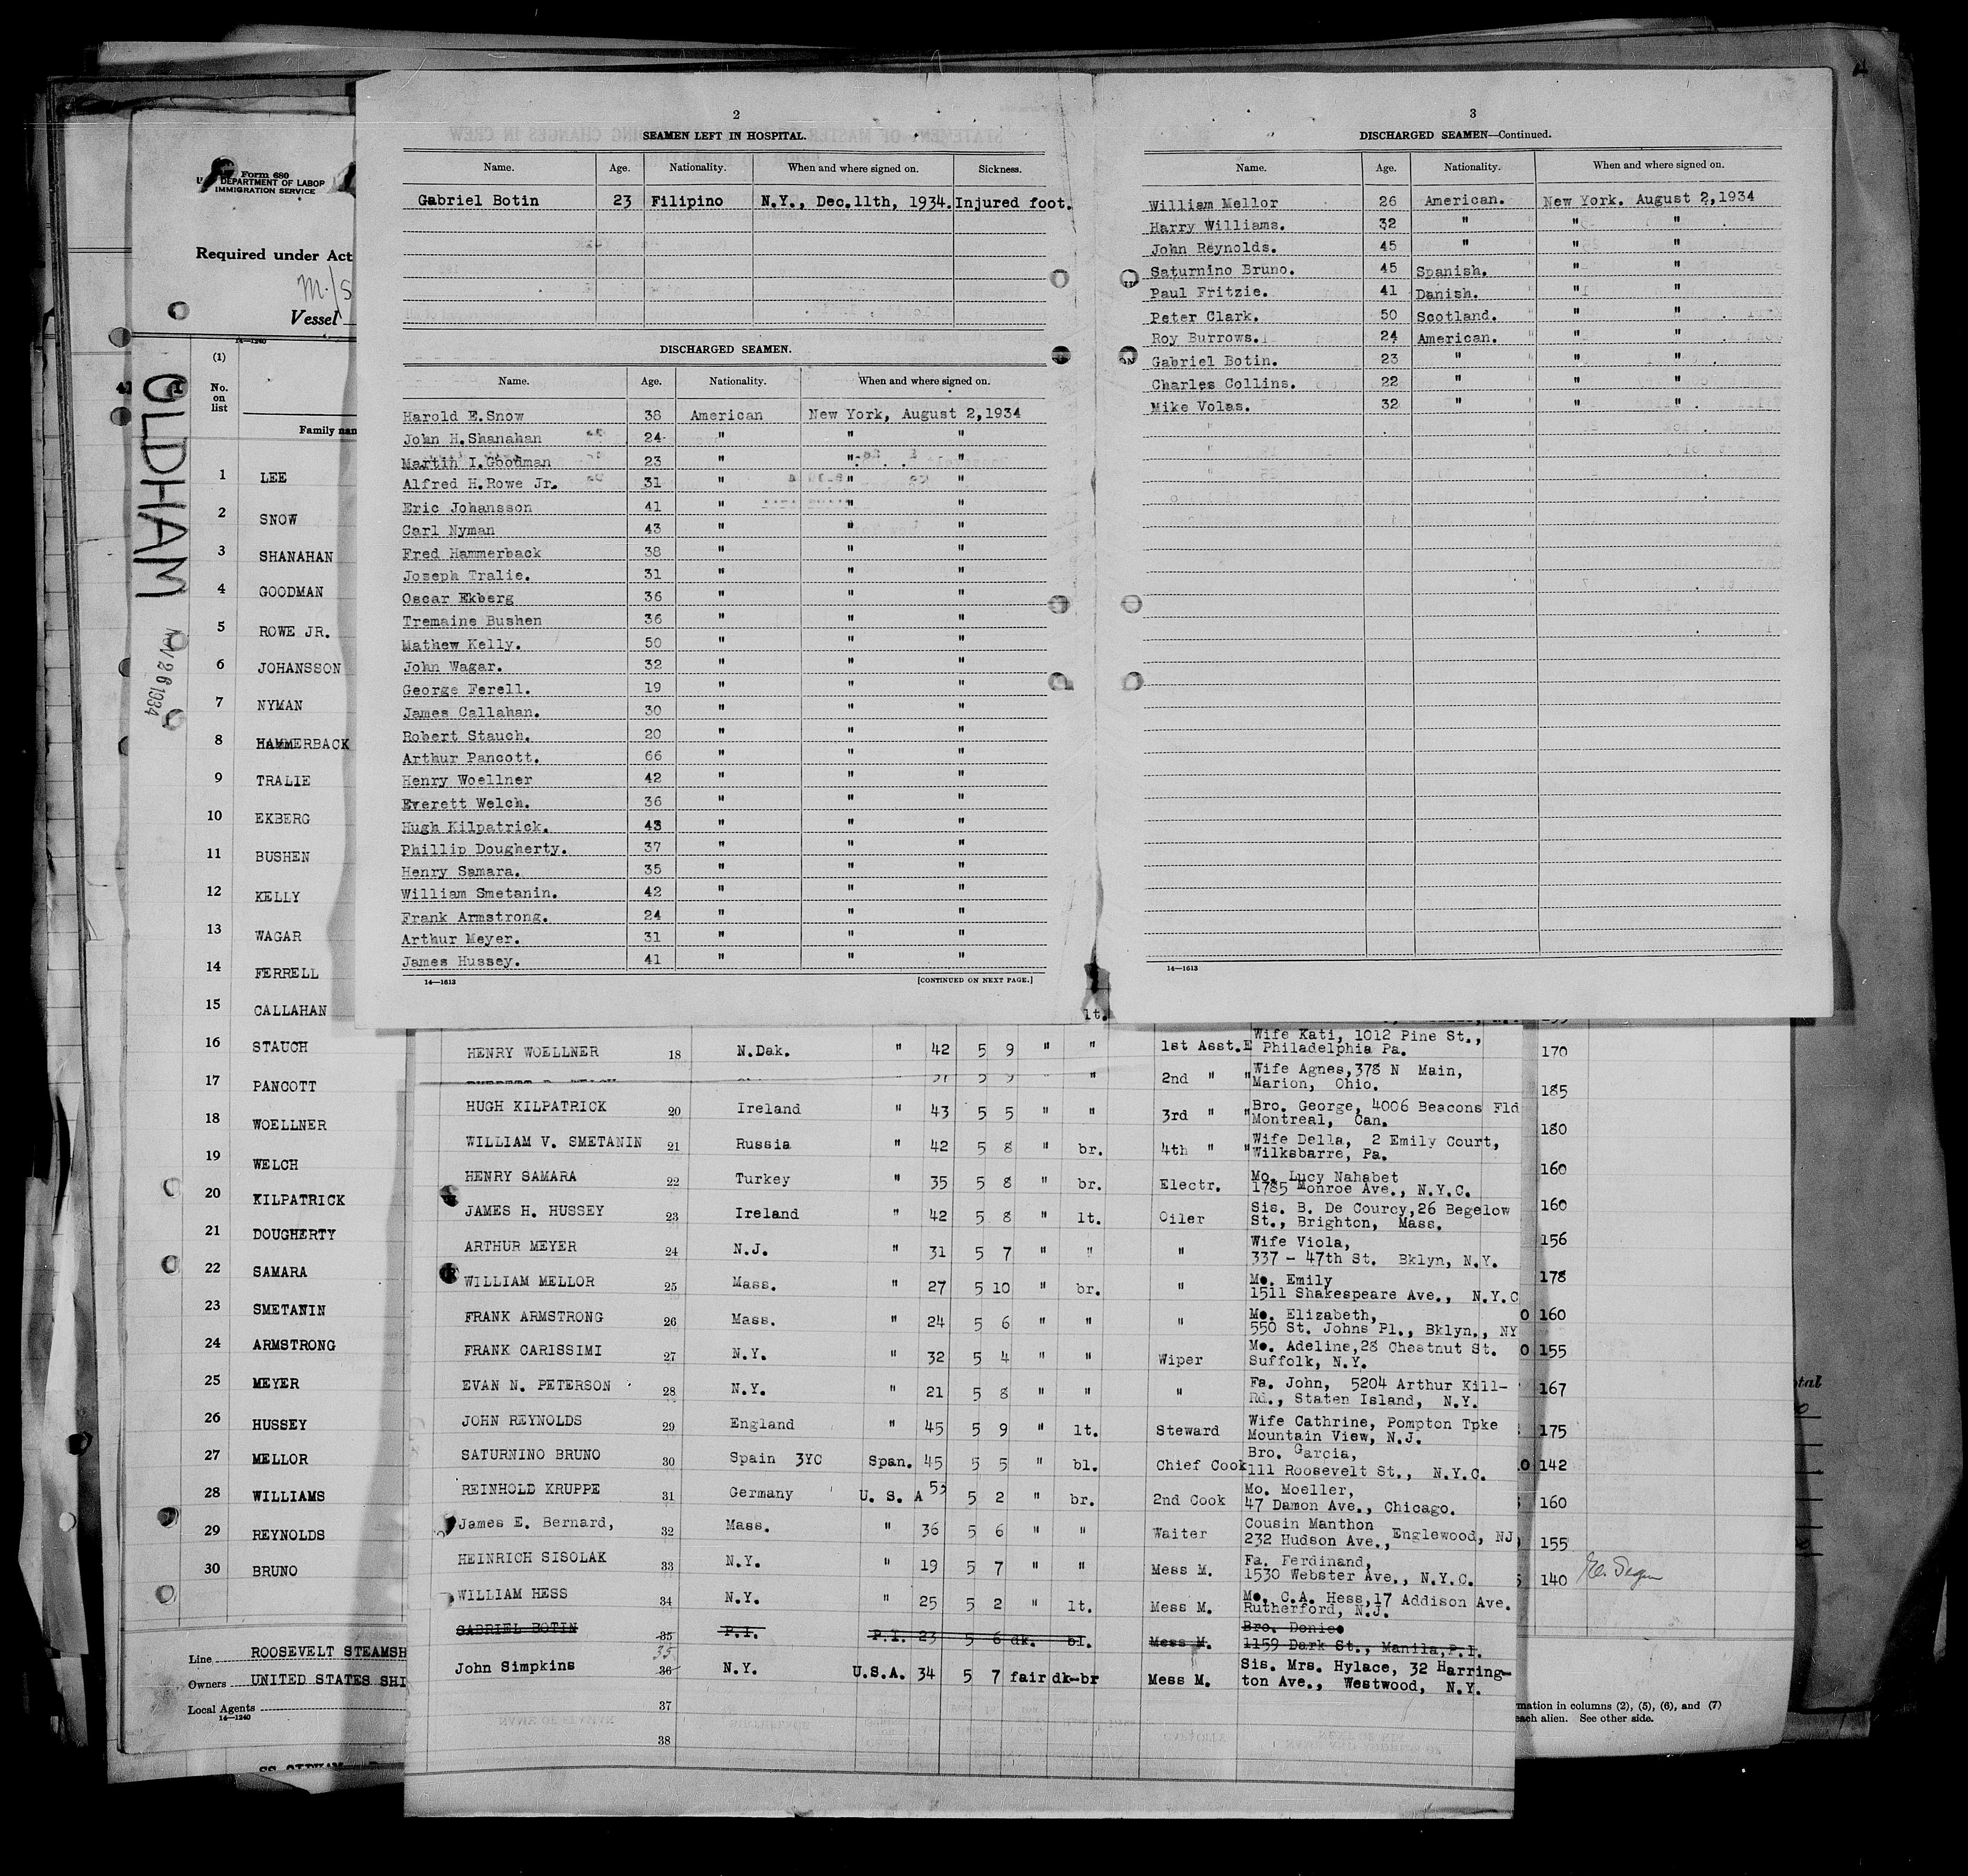 2
SEAMEN LEFT IN HOSPITAL.
Name. Age. Nationality. When and where signed on. Sickness.
Gabriel Botin 23 Filipino N.Y., Dec.11th, 1934. Injured foot.
DISCHARGED SEAMEN.
Name. Age. Nationality. When and where signed on.
Harold E.Snow 38 American New York, August 2,1934
John H.Shanahan 24 " " "
Martin I.Goodman 23 " " "
Alfred H.Rowe Jr. 31 " " "
Eric Johansson 41 " " "
Carl Nyman 43 " " "
Fred Hammerback 38 " " "
Joseph Tralie. 31 " " "
Oscar Ekberg 36 " " "
Tremaine Bushen 36 " " "
Mathew Kelly. 50 " " "
John Wagar. 32 " " "
George Ferell. 19 " " "
James Callahan. 30 " " "
Robert Stauch. 20 " " "
Arthur Pancott. 66 " " "
Henry Woellner 42 " " "
Everett Welch. 36 " " "
Hugh Kilpatrick. 43 " " "
Phillip Dougherty. 37 " " "
Henry Samara. 35 " " "
William Smetanin. 42 " " "
Frank Armstrong. 24 " " "
Arthur Meyer. 31 " " "
James Hussey. 41 " " "
14—1613 [CONTINUED ON NEXT PAGE.]
3
DISCHARGED SEAMEN—Continued.
Name. Age. Nationality. When and where signed on.
William Mellor 26 American. New York. August 2,1934
Harry Williams. 32 " " "
John Reynolds. 45 " " "
Saturnino Bruno. 45 Spanish. " "
Paul Fritzie. 41 Danish. " "
Peter Clark. 50 Scotland. " "
Roy Burrows. 24 American. " "
Gabriel Botin. 23 " " "
Charles Collins. 22 " " "
Mike Volas. 32 " " "
14—1613
Form 680
DEPARTMENT OF LABOR
IMMIGRATION SERVICE
Required under Act
M/S
Vessel
14—1240
OLDHAM
NOV 26 1934
(1)
No.
on
list
Family nam
1 LEE
2 SNOW
3 SHANAHAN
4 GOODMAN
5 ROWE JR.
6 JOHANSSON
7 NYMAN
8 HAMMERBACK
9 TRALIE
10 EKBERG
11 BUSHEN
12 KELLY
13 WAGAR
14 FERRELL
15 CALLAHAN
16 STAUCH
17 PANCOTT
18 WOELLNER
19 WELCH
20 KILPATRICK
21 DOUGHERTY
22 SAMARA
23 SMETANIN
24 ARMSTRONG
25 MEYER
26 HUSSEY
27 MELLOR
28 WILLIAMS
29 REYNOLDS
30 BRUNO
Line ROOSEVELT STEAMSH
Owners UNITED STATES SHI
Local Agents
14—1240
SS OLDHAM
lt.
HENRY WOELLNER 18 N.Dak. " 42 5 9 " " 1st Asst.E Wife Kati, 1012 Pine St.,
Philadelphia Pa.
2nd " " Wife Agnes,378 N Main,
Marion, Ohio.
HUGH KILPATRICK 20 Ireland " 43 5 5 " " 3rd " " Bro. George, 4006 Beacons Fld
Montreal, Can.
WILLIAM V. SMETANIN 21 Russia " 42 5 8 " br. 4th " " Wife Della, 2 Emily Court,
Wilksbarre, Pa.
HENRY SAMARA 22 Turkey " 35 5 8 " br. Electr. Mo. Lucy Nahabet
1785 Monroe Ave., N.Y.C.
JAMES H. HUSSEY 23 Ireland " 42 5 8 " lt. Oiler Sis. B. De Courcy,26 Begelow
St., Brighton, Mass.
ARTHUR MEYER 24 N.J. " 31 5 7 " " " Wife Viola,
337 - 47th St. Bklyn, N.Y.
WILLIAM MELLOR 25 Mass. " 27 5 10 " br. " Mo. Emily
1511 Shakespeare Ave., N.Y.C
FRANK ARMSTRONG 26 Mass. " 24 5 6 " " " Mo. Elizabeth,
550 St. Johns Pl., Bklyn., NY
FRANK CARISSIMI 27 N.Y. " 32 5 4 " " Wiper Mo. Adeline,28 Chestnut St.
Suffolk, N.Y.
EVAN N. PETERSON 28 N.Y. " 21 5 8 " " " Fa. John, 5204 Arthur Kill-
Rd., Staten Island, N.Y.
JOHN REYNOLDS 29 England " 45 5 9 " lt. Steward Wife Cathrine, Pompton Tpke
Mountain View, N.J.
SATURNINO BRUNO 30 Spain 3YC Span. 45 5 5 " bl. Chief Cook Bro. Garcia,
111 Roosevelt St., N.Y.C.
REINHOLD KRUPPE 31 Germany U. S. A 53 5 2 " br. 2nd Cook Mo. Moeller,
47 Damon Ave., Chicago.
James E. Bernard, 32 Mass. " 36 5 6 " " Waiter Cousin Manthon
232 Hudson Ave., Englewood, NJ
HEINRICH SISOLAK 33 N.Y. " 19 5 7 " " Mess M. Fa. Ferdinand,
1530 Webster Ave., N.Y.C.
WILLIAM HESS 34 N.Y. " 25 5 2 " lt. Mess M. Mo. C.A. Hess,17 Addison Ave.
Rutherford, N.J.
GABRIEL BOTIN 35 P.I. P.I. 23 5 6 dk. bl. Mess M. Bro. Donico
1159 Dark St., Manila,P.I.
35
John Simpkins 36 N.Y. U.S.A. 34 5 7 fair dk-br Mess M. Sis. Mrs. Hylace, 32 Harring-
ton Ave., Westwood, N.Y.
37
38
170
185
180
160
160
156
178
160
155
167
175
142
160
155
140
mation in columns (2), (5), (6), and (7)
each alien. See other side.